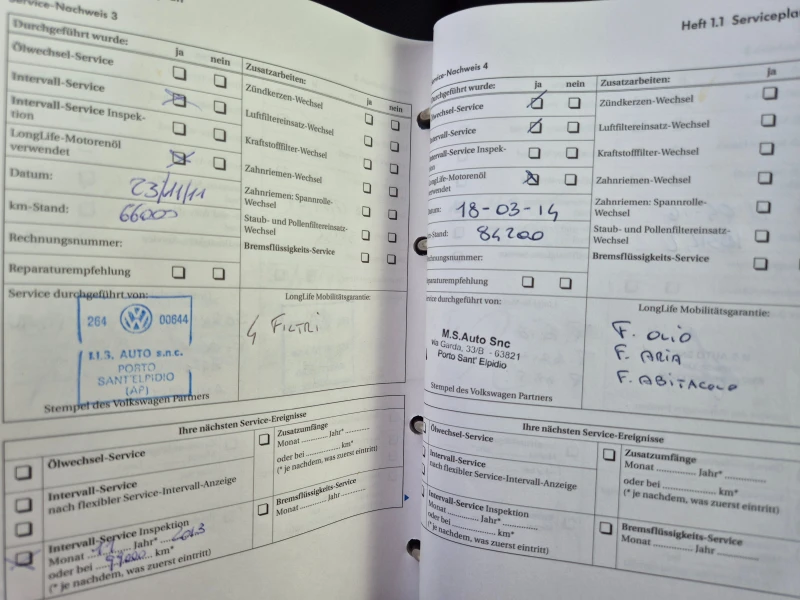 Service-Nachweis 3
Durchgeführt wurde:
ja
nein
Ölwechsel-Service
Intervall-Service
Intervall-Service Inspek-
tion
LongLife-Motorenöl
verwendet
Datum:
23/11/11
km-Stand:
66000
Rechnungsnummer:
Reparaturempfehlung
Zusatzarbeiten:
ja
nein
Zündkerzen-Wechsel
Luftfiltereinsatz-Wechsel
Kraftstofffilter-Wechsel
Zahnriemen-Wechsel
Zahnriemen: Spannrolle-
Wechsel
Staub- und Pollenfiltereinsatz-
Wechsel
Bremsflüssigkeits-Service
Service durchgeführt von:
264
00644
AUTO s.n.c.
PORTO
SANT'ELPIDIO
(AP)
Stempel des Volkswagen Partners
LongLife Mobilitätsgarantie:
4 FILTRI
Ihre nächsten Service-Ereignisse
Ölwechsel-Service
Intervall-Service
nach flexibler Service-Intervall-Anzeige
Intervall-Service Inspektion
Monat ........ Jahr* 2013
oder bei ........ km*
(* je nachdem, was zuerst eintritt)
Zusatzumfänge
Monat ............ Jahr* ............
oder bei ............ km*
(* je nachdem, was zuerst eintritt)
Bremsflüssigkeits-Service
Monat ............ Jahr ............
Heft 1.1 Servicepla
ervice-Nachweis 4
Durchgeführt wurde:
ja
nein
lwechsel-Service
tervall-Service
ntervall-Service Inspek-
on
LongLife-Motorenöl
verwendet
Datum:
18-03-14
m-Stand:
84200
chnungsnummer:
eparaturempfehlung
Zusatzarbeiten:
ja
Zündkerzen-Wechsel
Luftfiltereinsatz-Wechsel
Kraftstofffilter-Wechsel
Zahnriemen-Wechsel
Zahnriemen: Spannrolle-
Wechsel
Staub- und Pollenfiltereinsatz-
Wechsel
Bremsflüssigkeits-Service
ervice durchgeführt von:
M.S.Auto Snc
via Garda, 33/B - 63821
Porto Sant' Elpidio
Stempel des Volkswagen Partners
LongLife Mobilitätsgarantie:
F. OLIO
F. ARIA
F. ABITACOLO
Ihre nächsten Service-Ereignisse
Ölwechsel-Service
Intervall-Service
nach flexibler Service-Intervall-Anzeige
Intervall-Service Inspektion
Monat ............ Jahr* ............
oder bei ............ km*
(* je nachdem, was zuerst eintritt)
Zusatzumfänge
Monat ............ Jahr* ............
oder bei ............ km*
(* je nachdem, was zuerst eintritt)
Bremsflüssigkeits-Service
Monat ............ Jahr ............